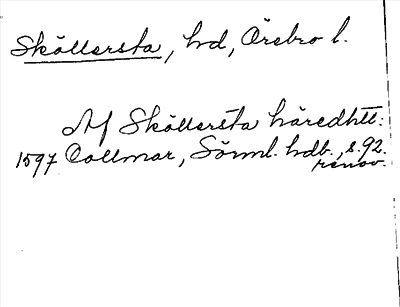 Sköllersta, hd, Örebro l.
Af Sköllersta häredhtt:
1597 Collmar, Sörml. hdb., s. 92.
renov.